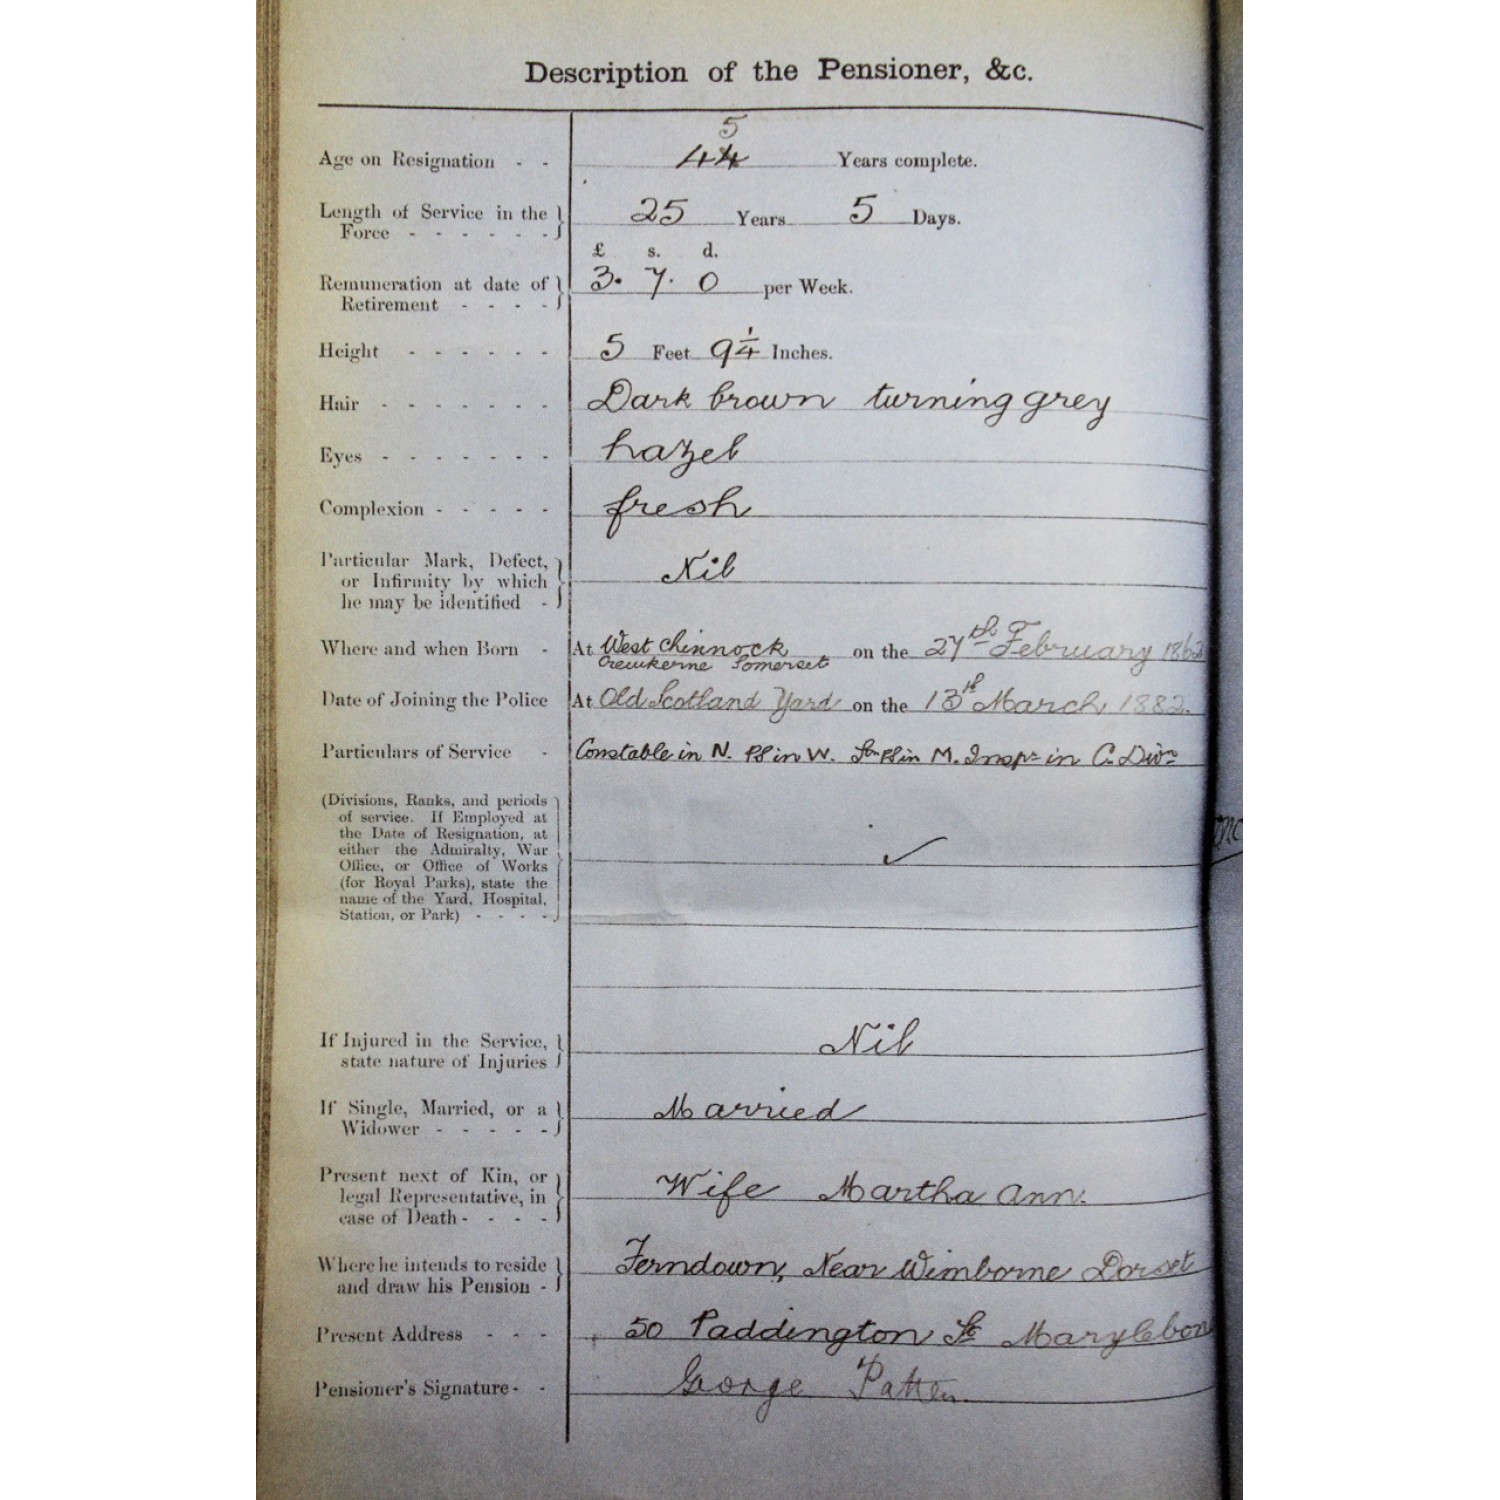 Description of the Pensioner, &c.
5
Age on Resignation - - 44 Years complete.
Length of Service in the
Force - - - - - - 25 Years 5 Days.
£ s. d.
Remuneration at date of
Retirement - - - - 3. 7. 0 per Week.
Height - - - - - - 5 Feet 9¼ Inches.
Hair - - - - - - - Dark brown turning grey
Eyes - - - - - - - hazel
Complexion - - - - - fresh
Particular Mark, Defect,
or Infirmity by which Nil
he may be identified -
Where and when Born - At West Chinnock on the 27th February 1862
Crewkerne Somerset
Date of Joining the Police At Old Scotland Yard on the 13th March 1882.
Particulars of Service - Constable in N. PS in W. Stn PS in M. Inspr in C. Divn
(Divisions, Ranks, and periods
of service. If Employed at
the Date of Resignation, at
either the Admiralty, War
Office, or Office of Works
(for Royal Parks), state the
name of the Yard, Hospital,
Station, or Park) - - - -
If Injured in the Service,
state nature of Injuries Nil
If Single, Married, or a
Widower - - - - - Married
Present next of Kin, or
legal Representative, in Wife Martha Ann.
case of Death - - - -
Where he intends to reside
and draw his Pension - Ferndown, Near Wimborne Dorset
Present Address - - - 50 Paddington St Marylebon
Pensioner's Signature - - George Patten